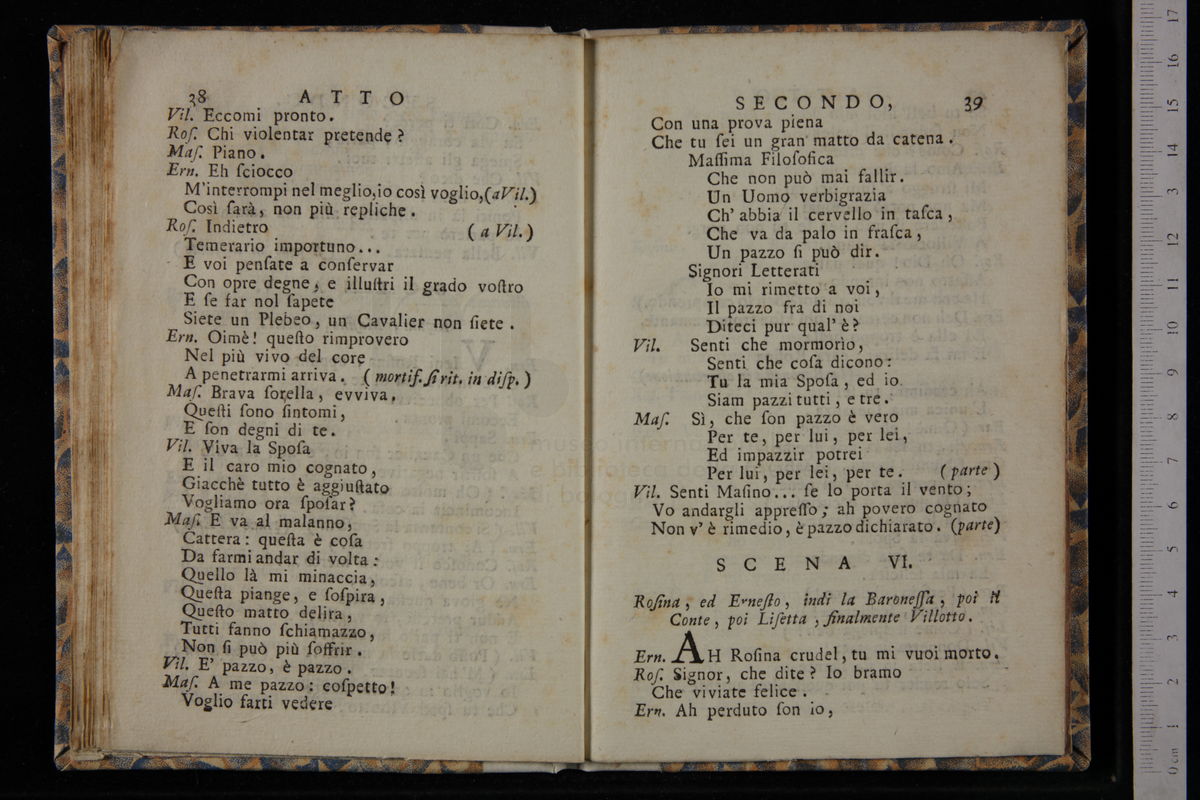 38 ATTO
Vil. Eccomi pronto.
Roſ. Chi violentar pretende?
Maſ. Piano.
Ern. Eh ſciocco
M'interrompi nel meglio, io così voglio, (a Vil.)
Così ſarà, non più repliche.
Roſ. Indietro (a Vil.)
Temerario importuno...
E voi penſate a conſervar
Con opre degne, e illuſtri il grado voſtro
E ſe far nol ſapete
Siete un Plebeo, un Cavalier non ſiete.
Ern. Oimè! queſto rimprovero
Nel più vivo del core
A penetrarmi arriva. (mortif. ſi rit. in diſp.)
Maſ. Brava ſorella, evviva,
Queſti ſono ſintomi,
E ſon degni di te.
Vil. Viva la Spoſa
E il caro mio cognato,
Giacchè tutto è aggiuſtato
Vogliamo ora ſpoſar?
Maſ. E va al malanno,
Cattera: queſta è coſa
Da farmi andar di volta:
Quello là mi minaccia,
Queſta piange, e ſoſpira,
Queſto matto delira,
Tutti fanno ſchiamazzo,
Non ſi può più ſoffrir.
Vil. E' pazzo, è pazzo.
Maſ. A me pazzo: coſpetto!
Voglio farti vedere
SECONDO, 39
Con una prova piena
Che tu ſei un gran matto da catena.
Maſſima Filoſofica
Che non può mai fallir.
Un Uomo verbigrazia
Ch' abbia il cervello in taſca,
Che va da palo in fraſca,
Un pazzo ſi può dir.
Signori Letterati
Io mi rimetto a voi,
Il pazzo fra di noi
Diteci pur qual' è?
Vil. Senti che mormorìo,
Senti che coſa dicono:
Tu la mia Spoſa, ed io
Siam pazzi tutti, e tre.
Maſ. Sì, che ſon pazzo è vero
Per te, per lui, per lei,
Ed impazzir potrei
Per lui, per lei, per te. (parte)
Vil. Senti Maſino... ſe lo porta il vento;
Vo andargli appreſſo; ah povero cognato
Non v' è rimedio, è pazzo dichiarato. (parte)
SCENA VI.
Roſina, ed Erneſto, indi la Baroneſſa, poi il
Conte, poi Liſetta, finalmente Villotto.
Ern. AH Roſina crudel, tu mi vuoi morto.
Roſ. Signor, che dite? Io bramo
Che viviate felice.
Ern. Ah perduto ſon io,